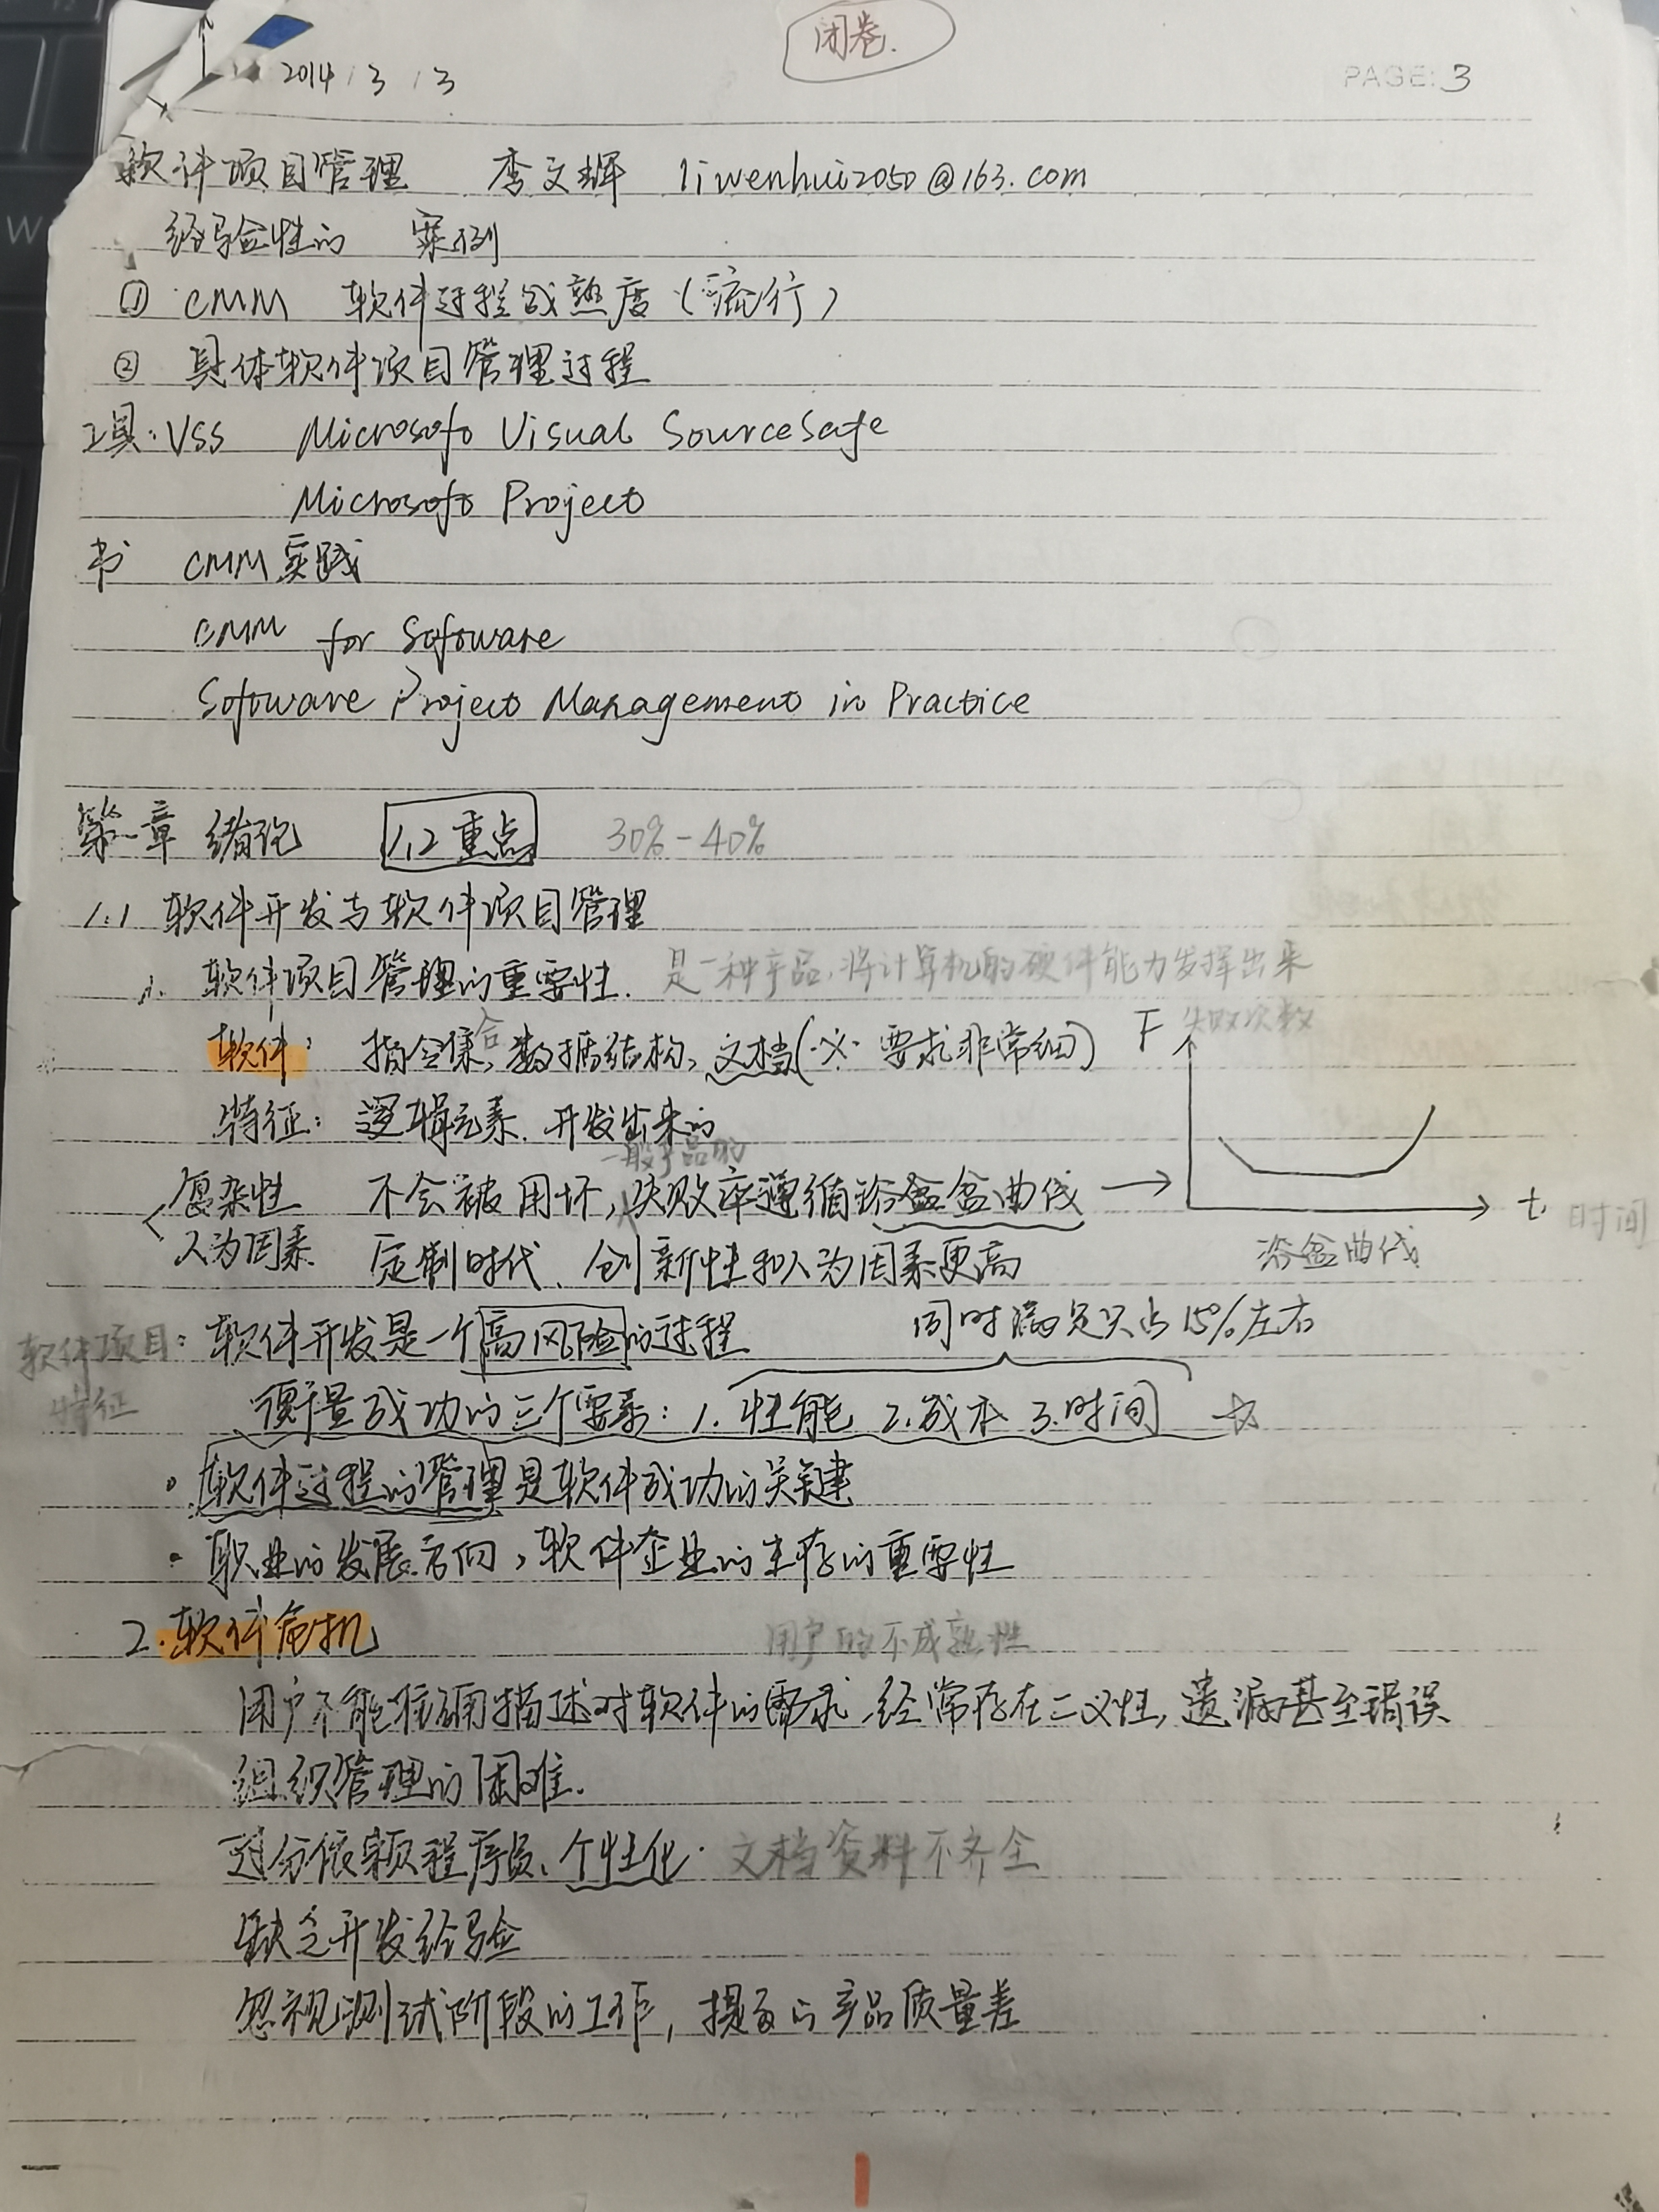 闭卷.
2014 / 3 / 3
PAGE: 3
软件项目管理 李文辉 liwenhui2050@163.com
经验性的 案例
① CMM 软件过程成熟度(流行)
② 具体软件项目管理过程
工具: VSS Microsoft Visual SourceSafe
Microsoft Project
书 CMM实践
CMM for Software
Software Project Management in Practice
第一章 绪论 1,2重点 30%-40%
1.1 软件开发与软件项目管理
1. 软件项目管理的重要性. 是一种产品,将计算机的硬件能力发挥出来
软件: 指令集合, 数据结构, 文档(※ 要求非常细)
F 失败次数
特征: 逻辑元素. 开发出来的
一般产品的
复杂性 不会被用坏, 失败率遵循浴盆曲线 →
t 时间
人为因素 定制时代、创新性和人为因素更高
浴盆曲线
同时满足只占15%左右
软件项目特征: 软件开发是一个高风险的过程
衡量成功的三个要素: 1. 性能 2. 成本 3. 时间 ☆
· 软件过程的管理是软件成功的关键
· 职业的发展方向, 软件企业的生存的重要性
2. 软件危机 用户的不成熟性
用户不能准确描述对软件的需求, 经常存在二义性, 遗漏甚至错误
组织管理的困难.
过分依赖程序员、个性化. 文档资料不齐全
缺乏开发经验
忽视测试阶段的工作, 提交的产品质量差